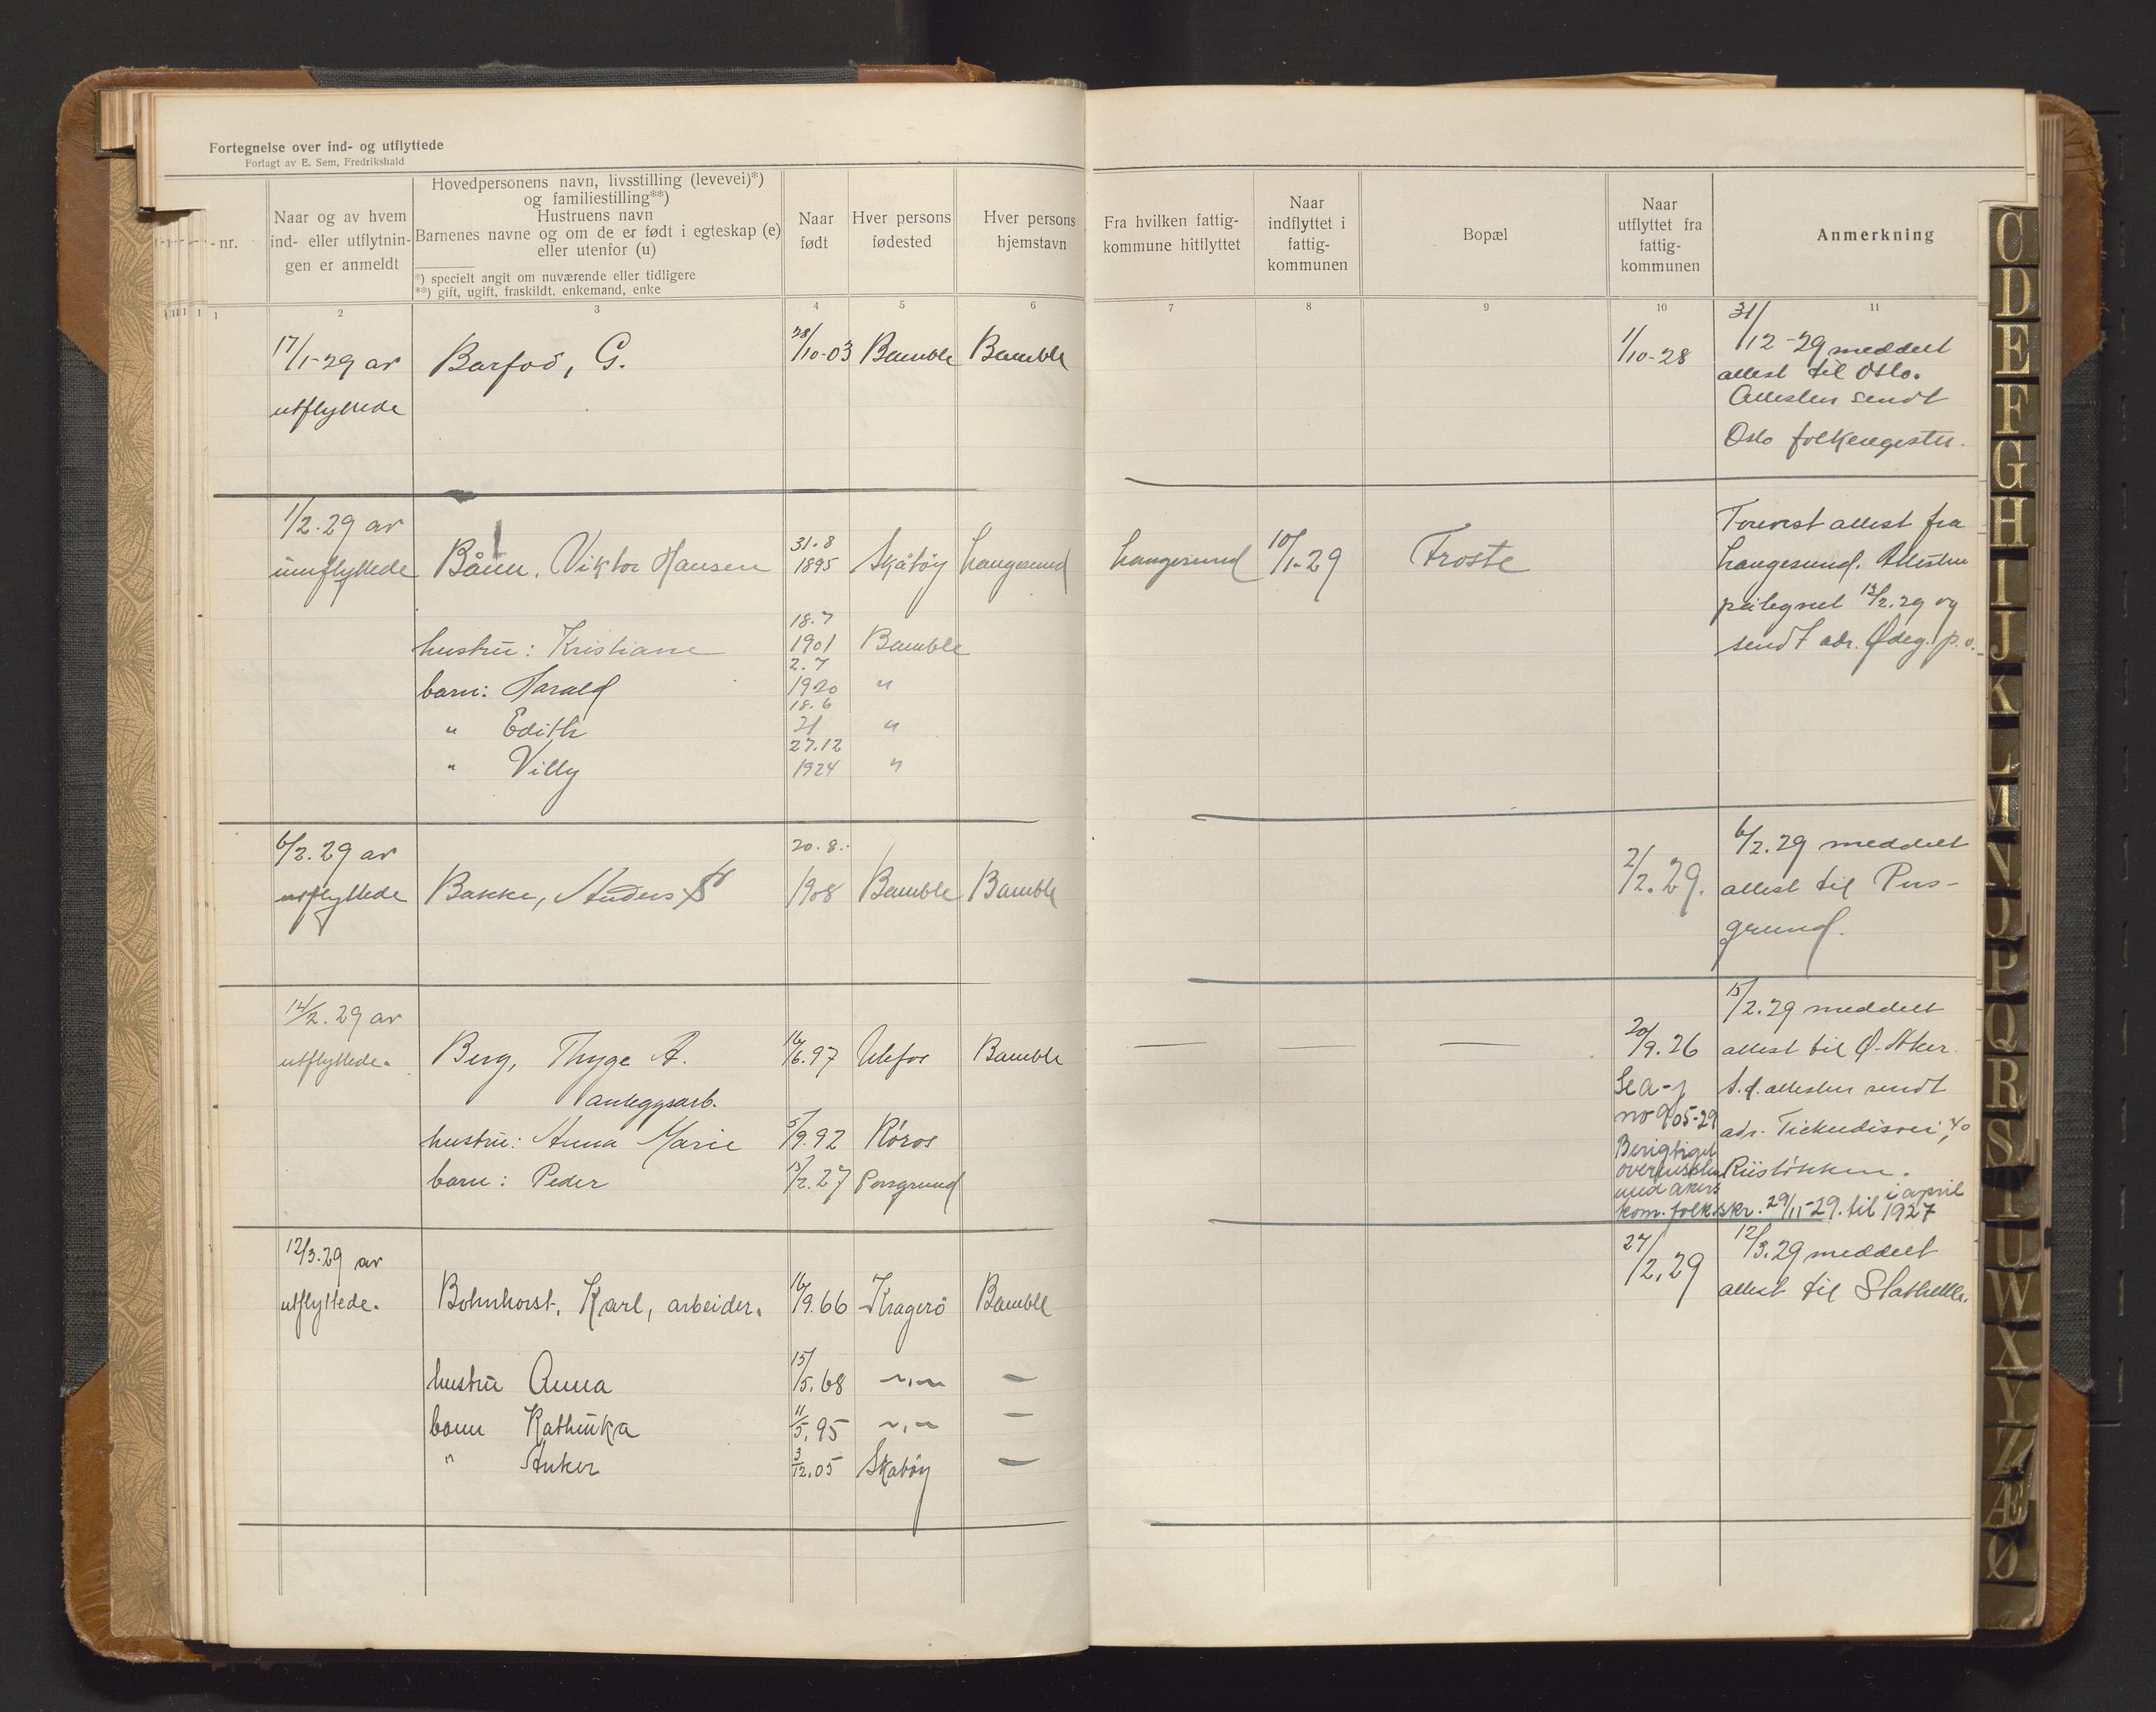 Fortegnelse over ind- og utflyttede
Forlagt av E. Sem, Fredrikshald
nr.
Naar og av hvem
ind- eller utflytnin-
gen er anmeldt
Hovedpersonens navn, livsstilling (levevei)*)
og familiestilling**)
Hustruens navn
Barnenes navne og om de er født i egteskap (e)
eller utenfor (u)
*) specielt angit om nuværende eller tidligere
**) gift, ugift, fraskildt. enkemand, enke
Naar
født
Hver persons
fødested
Hver persons
hjemstavn
Fra hvilken fattig-
kommune hitflyttet
Naar
indflyttet i
fattig-
kommunen
Bopæl
Naar
utflyttet fra
fattig-
kommunen
Anmerkning
1 2 3 4 5 6 7 8 9 10 11
17/1-29 av
utflyttede
Barfod, G.
28/10-03 Bamble Bamble
1/10-28
31/12-29 meddelt
attest til Oslo.
Attesten sendt
Oslo folkeregister.
1/2.29 av
innflyttede
Bånn, Viktor Hansen
31.8
1895 Skåtøy Langesund
Langesund 10/1-29 Froste
Forevist attest fra
Langesund. Attesten
påtegnet 13/2.29 og
sendt adr. Ødeg. p.o.
hustru: Kristiane
18.7
1901 Bamble
barn: Harald
2.7
1920 "
" Edith
18.6
21 "
" Villy
27.12
1924 "
6/2.29 av
utflyttede
Bakke, Anders
20.8.
1908 Bamble Bamble
2/2.29.
6/2.29 meddelt
attest til Pors-
grund.
14/2.29 av
utflyttede.
Berg, Thyge A.
anleggsarb.
16/6.97 Ulefos Bamble
— — —
20/9.26
Se a-j
no 905-29
Berigtiget
overensstem
med akers
kom. folk.skr. 29/11-29. til i april 1927
15/2.29 meddelt
attest til Ø. Aker.
S.d. attesten sendt
adr.
hustru: Anna Marie
5/9.92 Røros
barn: Peder
13/2.27 Porsgrund
12/3.29 av
utflyttede.
Bohnhorst, Karl, arbeider.
16/9.66 Kragerø Bamble
27/2.29
12/3.29 meddelt
attest til Stathelle.
hustru Anna
15/5.68 -"- —
barn Kathinka
11/5.95 -"- —
" Anker
3/12.05 Skåtøy —
C
D
E
F
G
H
I
J
K
L
M
N
O
P
Q
R
S
T
U
W
X
Y
Z
Æ
Ø